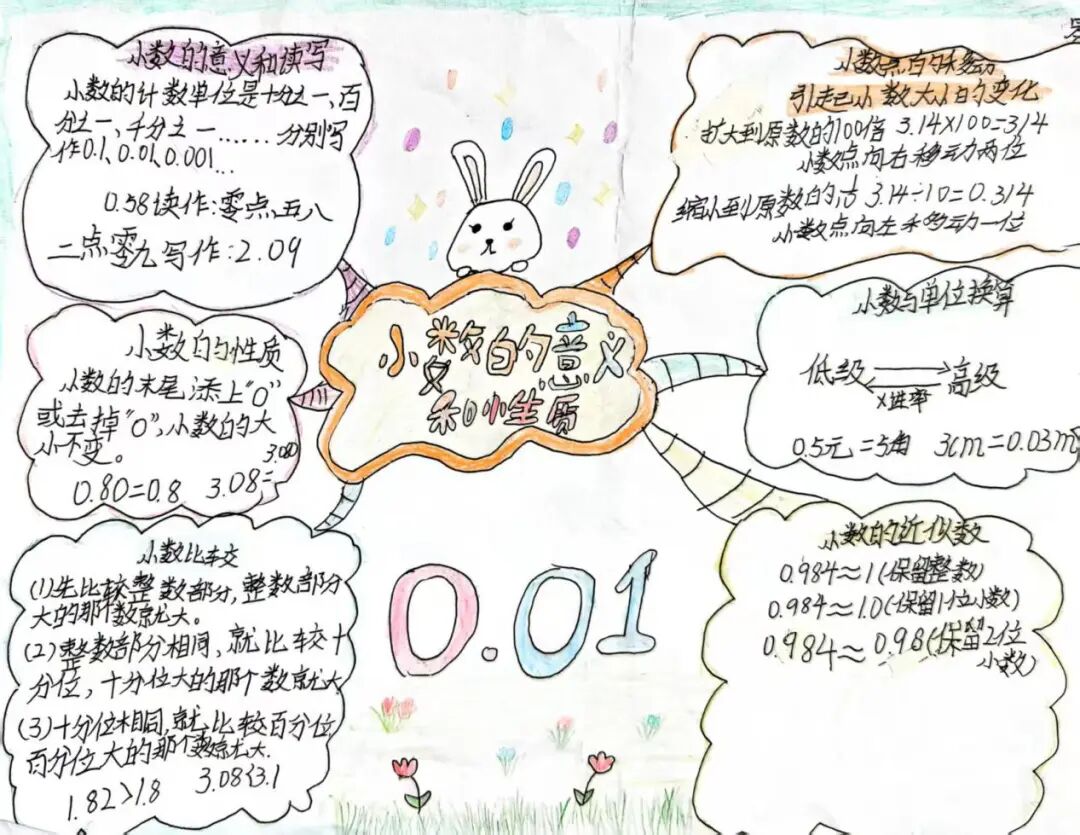 小数的意义和读写
小数的计数单位是十分之一、百
分之一、千分之一……分别写
作0.1、0.01、0.001…
0.58读作:零点五八
二点零九写作:2.09
小数的性质
小数的末尾添上"0"
或去掉"0",小数的大
小不变。
0.80=0.8 3.08=3.080
小数比较
(1)先比较整数部分,整数部分
大的那个数就大。
(2)整数部分相同,就比较十
分位,十分位大的那个数就大
(3)十分位相同,就比较百分位,
百分位大的那个数就大.
1.82>1.8 3.08<3.1
小数的意义
和性质
0.01
小数点的移动
引起小数大小的变化
扩大到原数的100倍 3.14×100=314
小数点向右移动两位
缩小到原数的 3.14÷10=0.314
小数点向左移动一位
小数与单位换算
低级 高级
×进率
0.5元=5角 3cm=0.03m
小数的近似数
0.984≈1(保留整数)
0.984≈1.0(保留1位小数)
0.984≈0.98(保留2位
小数)